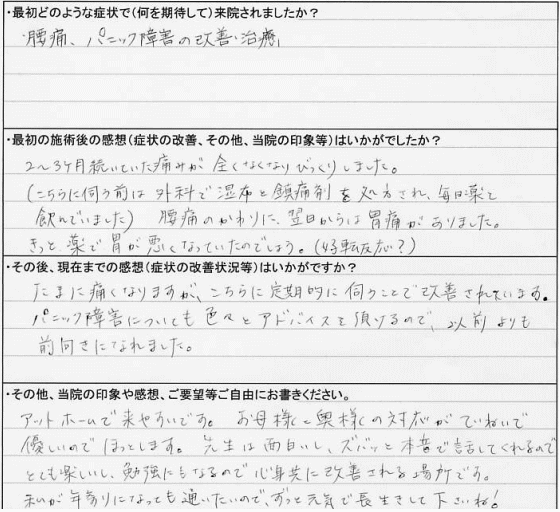 ・最初どのような症状で(何を期待して)来院されましたか?
腰痛、パニック障害の改善・治療
・最初の施術後の感想(症状の改善、その他、当院の印象等)はいかがでしたか?
2〜3ヶ月続いていた痛みが全くなくなりびっくりしました。
(こちらに伺う前は外科で湿布と鎮痛剤を処方され、毎日薬を
飲んでいました) 腰痛のかわりに、翌日からは胃痛がありました。
きっと、薬で胃が悪くなっていたのでしょう。(好転反応?)
・その後、現在までの感想(症状の改善状況等)はいかがですか?
たまに痛くなりますが、こちらに定期的に伺うことで改善されています。
パニック障害についても色々とアドバイスを頂けるので、以前よりも
前向きになれました。
・その他、当院の印象や感想、ご要望等ご自由にお書きください。
アットホームで来やすいです。 お母様と奥様の対応がていねいで
優しいのでほっとします。 先生は面白いし、ズバッと本音で話してくれるので
とても楽しいし、勉強にもなるので心身共に改善される場所です。
私が年寄りになっても通いたいので、ずっと元気で長生きして下さいね!